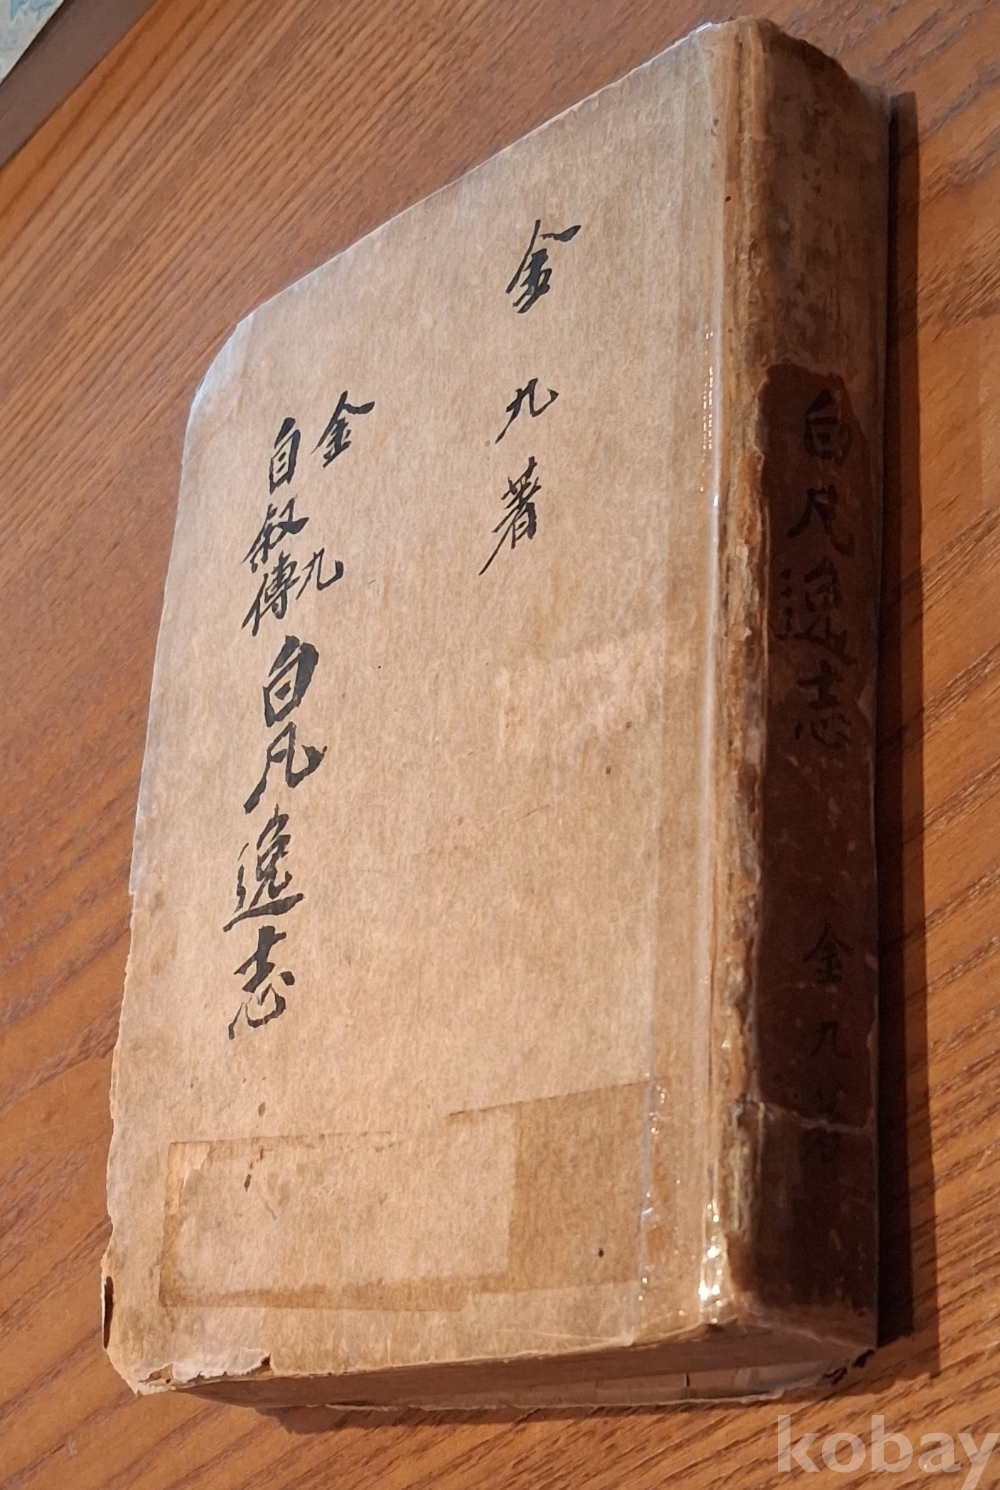 金九著
金九
自叙傳
白凡逸志
白凡逸志
金九著
kobay